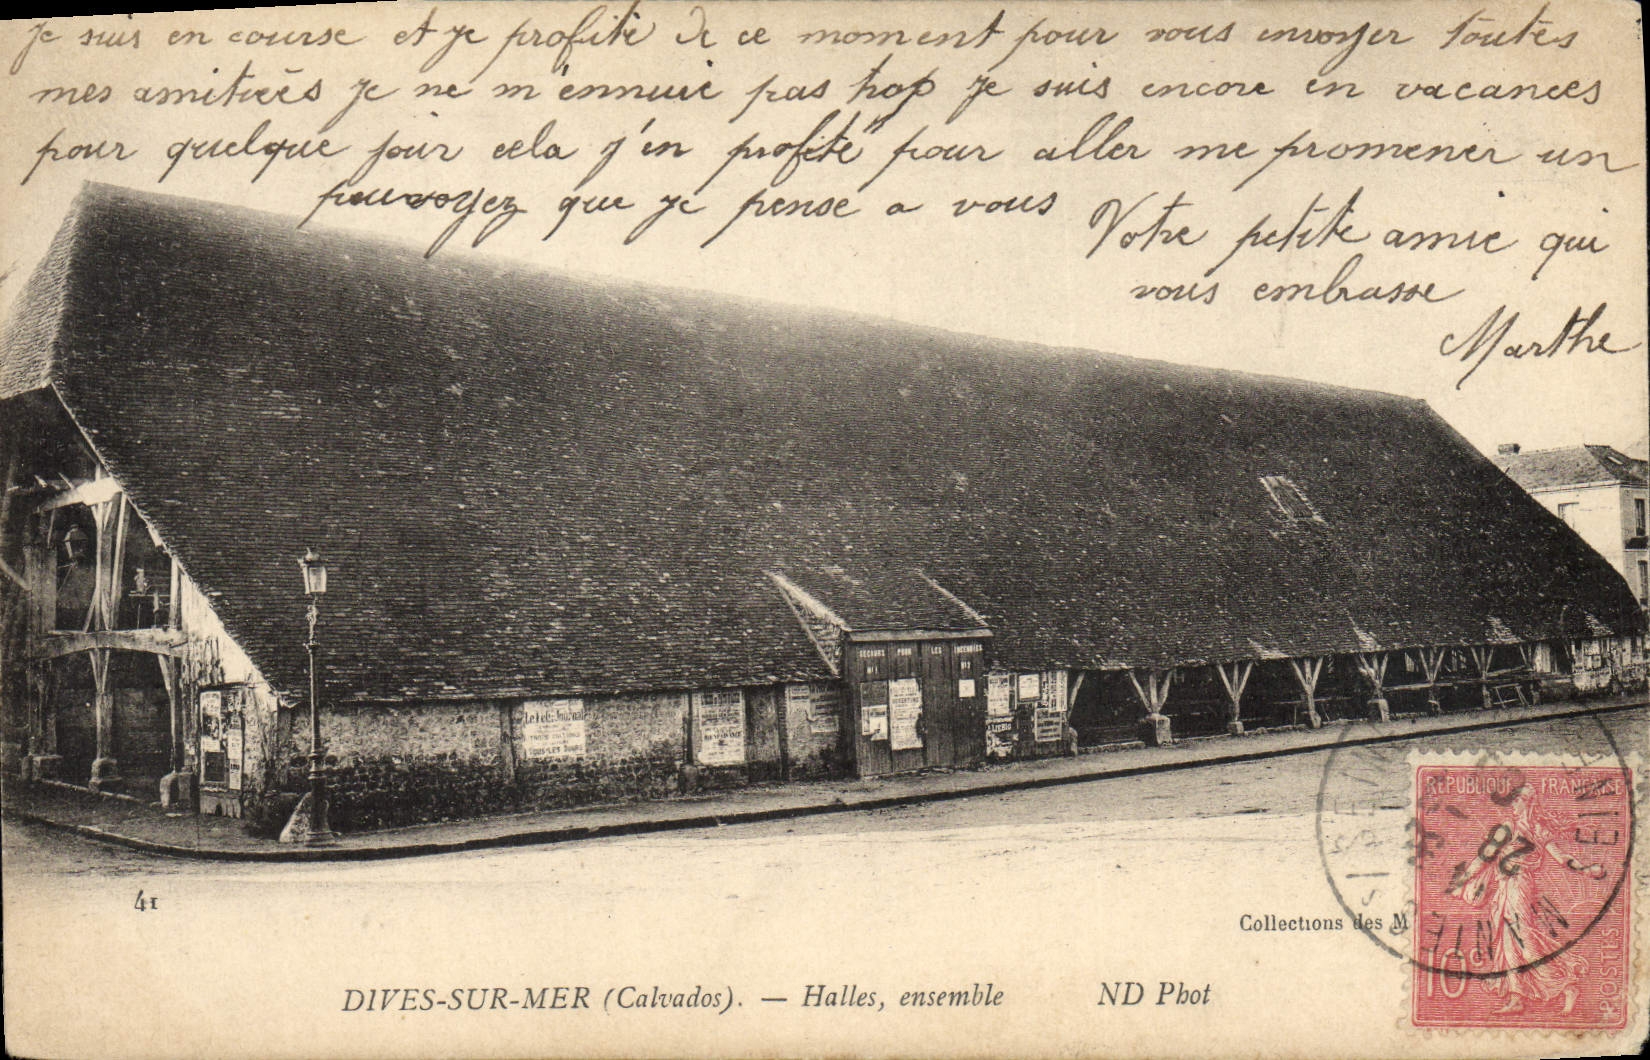 je suis en course et je profite de ce moment pour vous envoyer toutes
mes amitiées je ne m'ennuie pas trop je suis encore en vacances
pour quelque jour cela j'en profite pour aller me promener un
peu voyez que je pense a vous
Votre petite amie qui
vous embrasse
Marthe
SECOURS POUR LES INCENDIES
N°1 N°2
41
Collections des M
DIVES-SUR-MER (Calvados). — Halles, ensemble ND Phot
REPUBLIQUE FRANÇAISE
POSTES
10c
MANTES
28